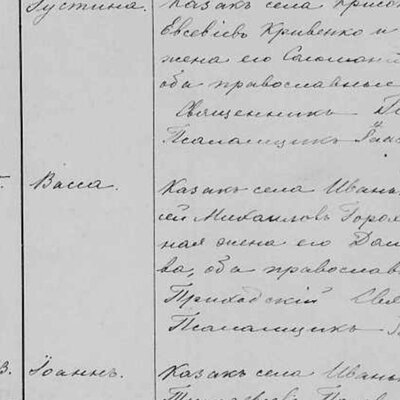 Іустина. Казакъ села Крисо
Евсевіевъ Кривенко и
жена его Соломоні
оба православные
Священникъ
Псаломщикъ
Васса. Казакъ села Ивань
сѣй Михаиловъ Горох
ная жена его
ва, оба православ
Приходскій Свя
Псаломщикъ
Іоаннъ. Казакъ села Ивань